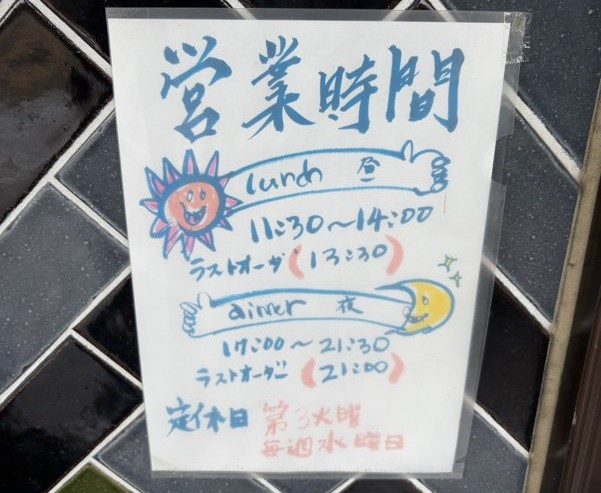 営業時間
lunch 昼
11:30～14:00
ラストオーダー(13:30)
dinner 夜
17:00～21:30
ラストオーダー(21:00)
定休日 第3火曜
毎週水曜日